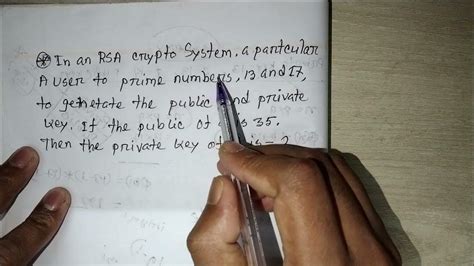 ⊛ In an RSA crypto System, a partcular
A user to prime numbers, 13 and 17,
to genetate the public and private
key. If the public of is 35.
Then the private key of is = ?